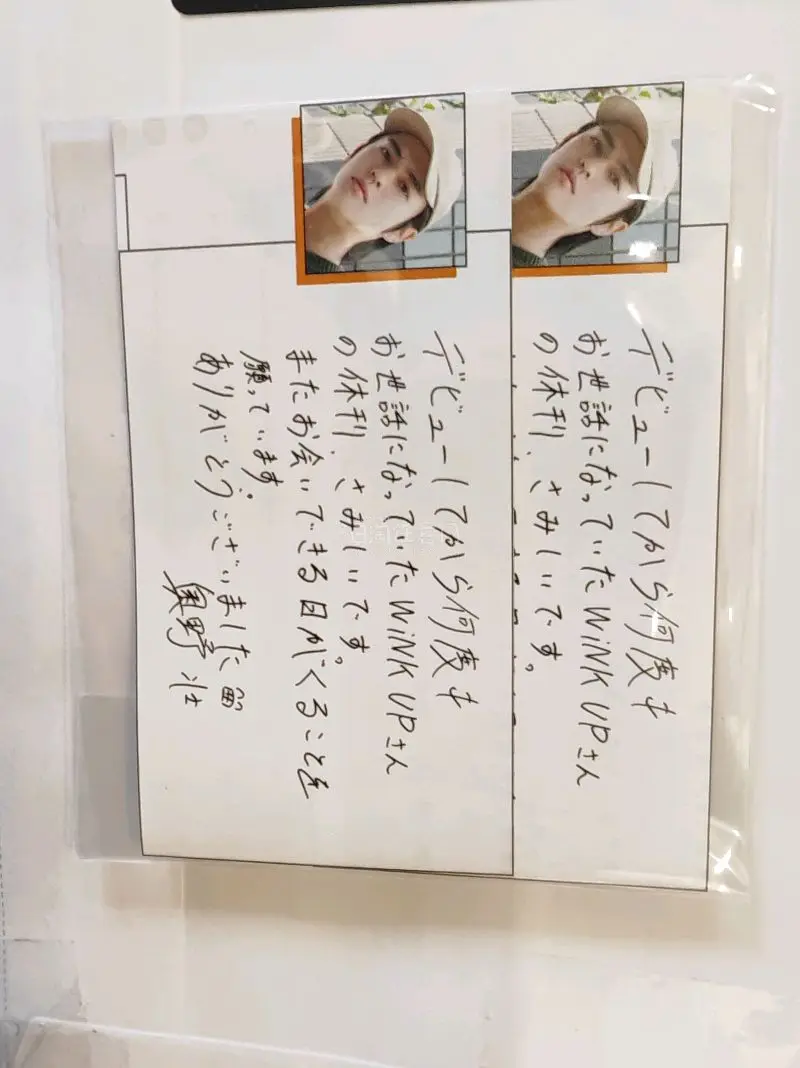 デビューしてから何度も
お世話になっていたWiNK UPさん
の休刊、さみしいです。
デビューしてから何度も
お世話になっていたWiNK UPさん
の休刊、さみしいです。
またお会いできる日がくることを
願っています。
ありがとうございました
奥野 壮